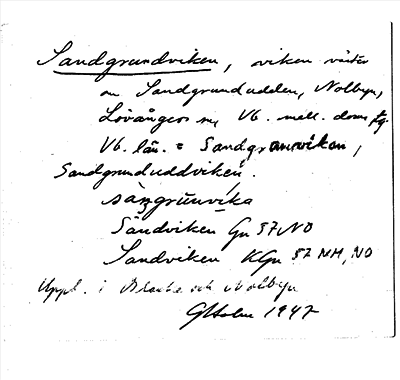 Sandgrundviken, viken väster
om Sandgrundudden, Nolbyn,
Lövångers sn, Vb. mell. doms fg.
Vb. län. = Sandgrunviken,
Sandgrunduddviken.
sàn̥grùnvika
Sandviken Gn 57 NO
Sandviken KGn 57 NH, NO
Uppt. i Blacke och Nolbyn
GHolm 1947